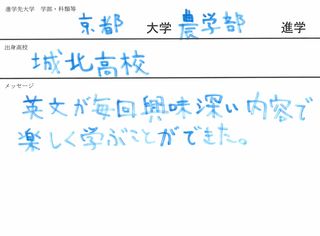 進学先大学 学部・科類等
京都 大学 農学部 進学
出身高校
城北高校
メッセージ
英文が毎回興味深い内容で
楽しく学ぶことができた。